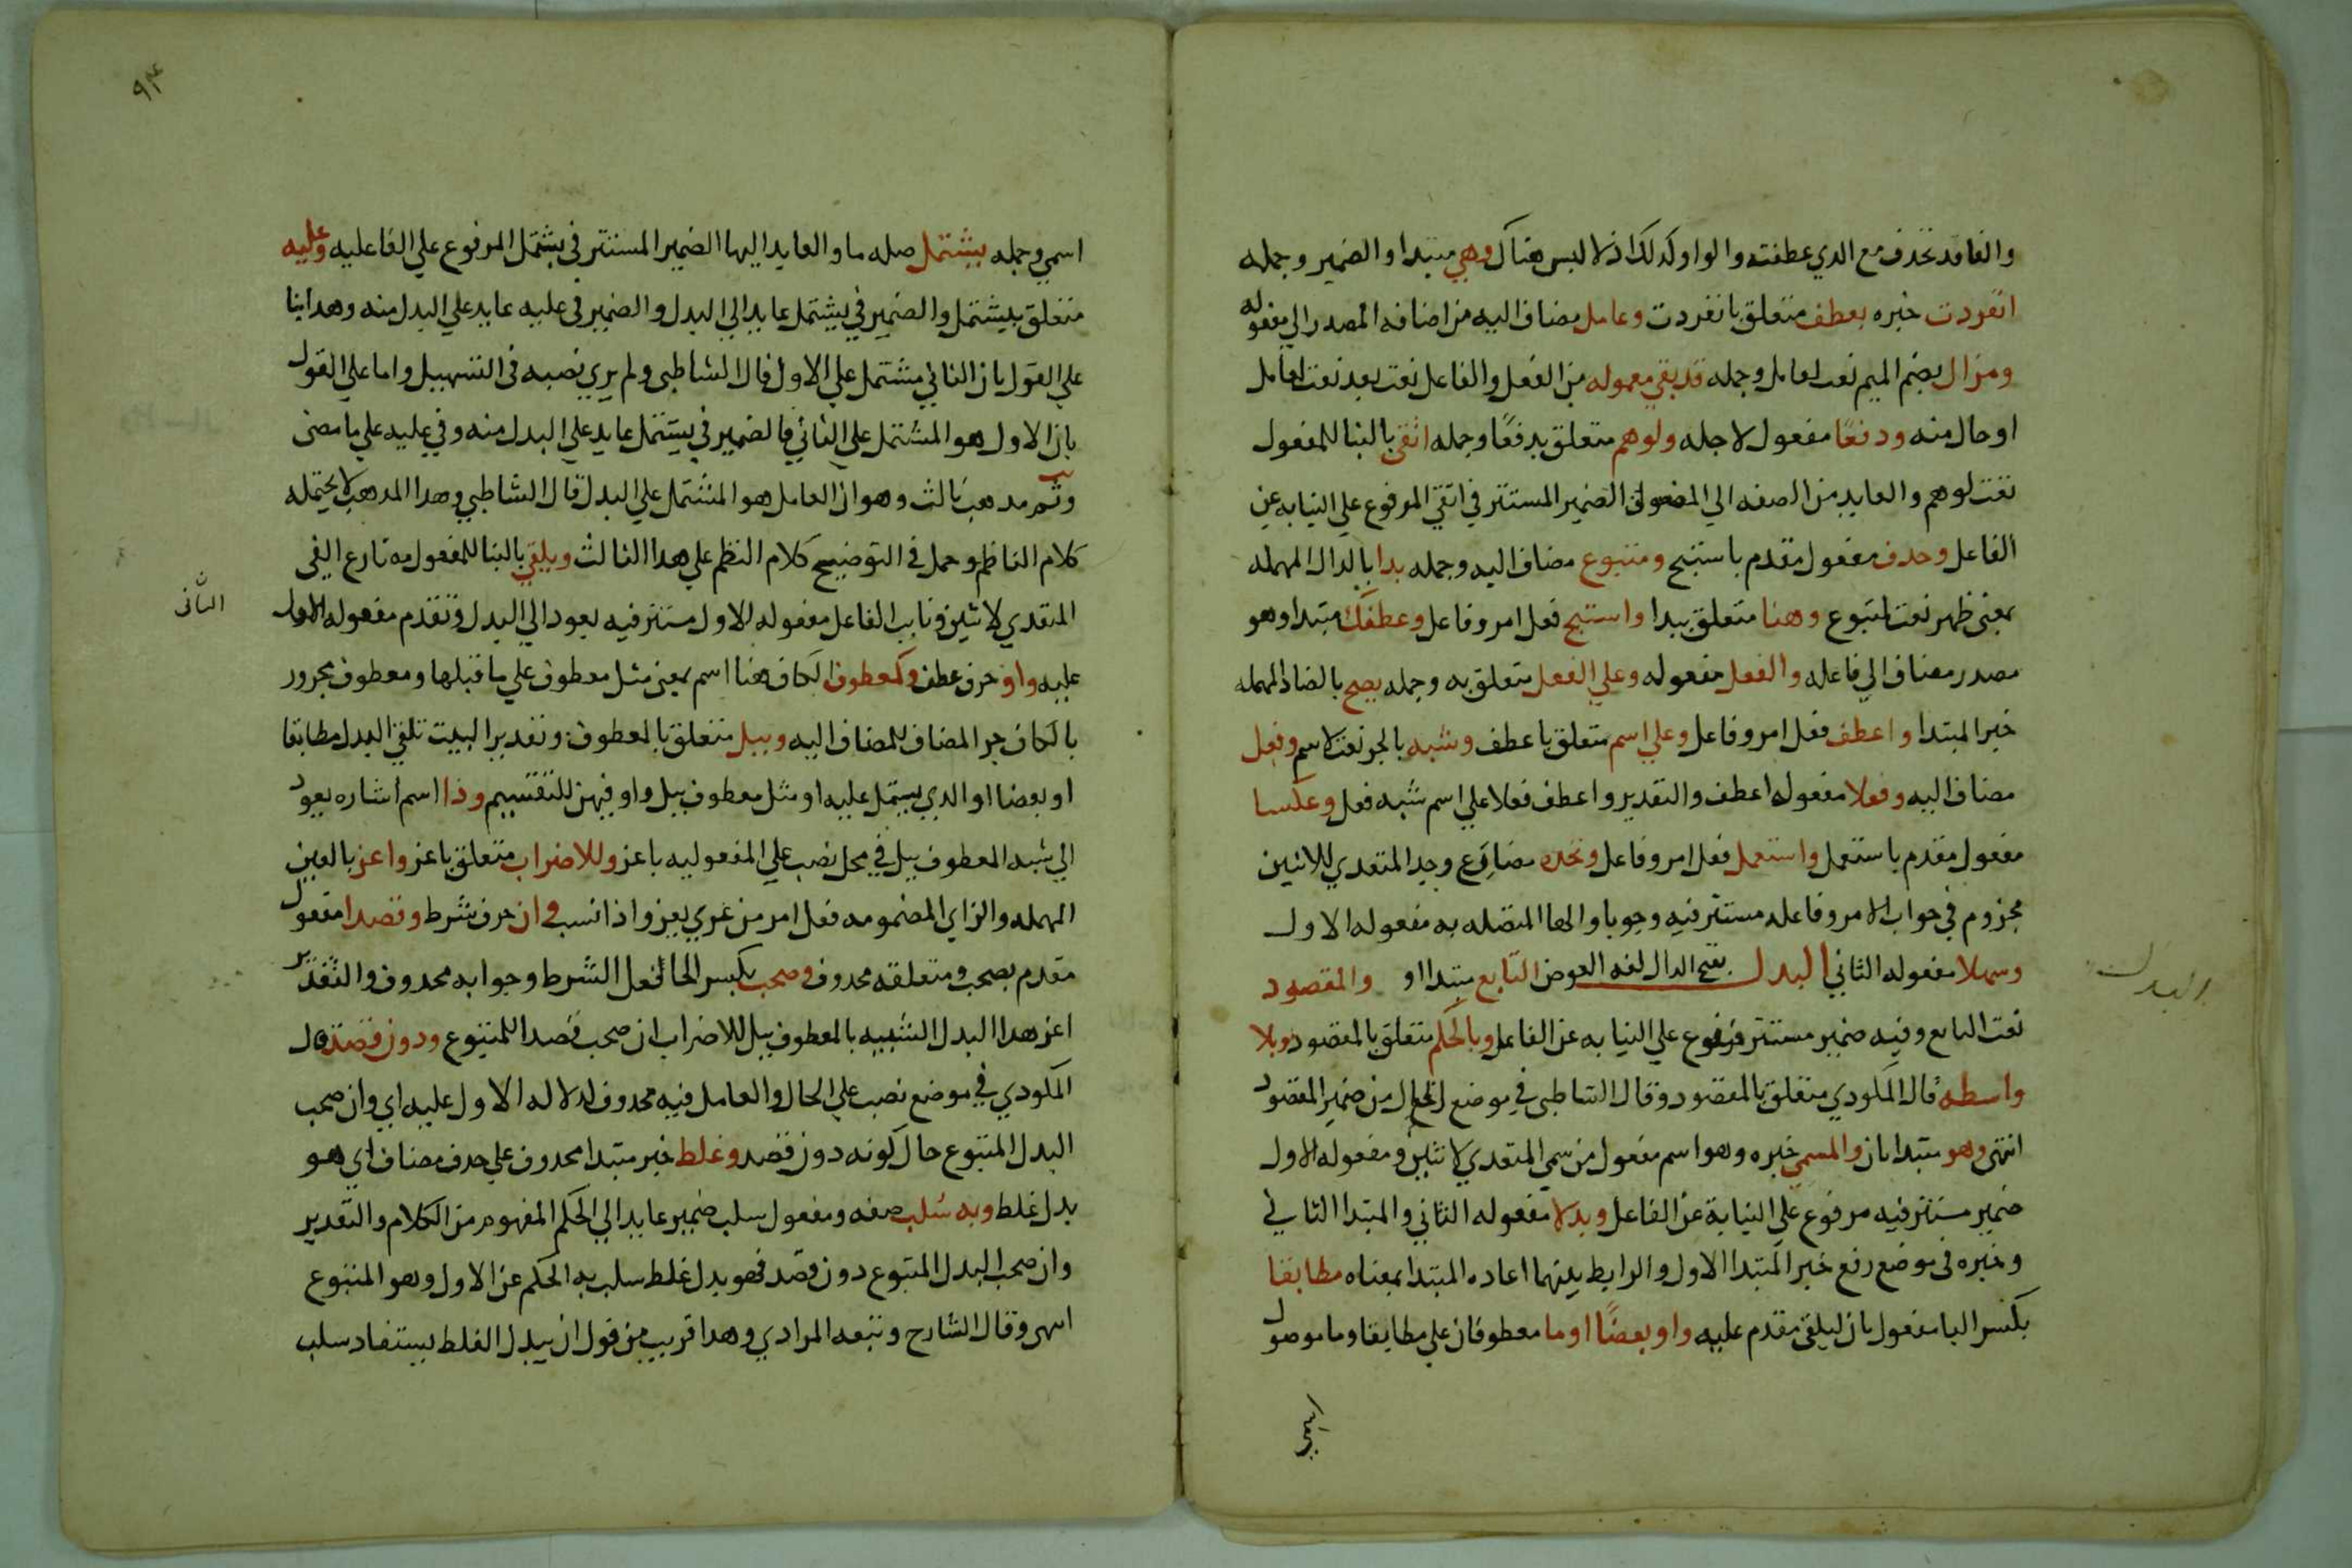 والفا قد تحذف مع الذي عطفت والواو كذلك اذ لا لبس هناك وهي مبتدا والضمير وجمله
انفردت خبره بعطف متعلق بانفردت وعامل مضاف اليه من اضافه المصدر الي مفعوله
ومزال بضم الميم نعت لعامل وجمله قد بقي معموله من الفعل والفاعل نعت بعد نعت لعامل
او حال منه ودفعًا مفعول لاجله ولوهم متعلق بدفعًا وجمله اتقي بالبنا للمفعول
نعت لوهم والعايد من الصفه الي الموصوف الضمير المستتر في اتقي المرفوع علي النيابه عن
الفاعل وحذف مفعول مقدم باستبح ومتبوع مضاف اليه وجمله بدا بالدال المهمله
بمعني ظهر نعت لمتبوع وهنا متعلق ببدا واستبح فعل امر وفاعل وعطفك مبتدا وهو
مصدر مضاف الي فاعله والفعل مفعوله وعلي الفعل متعلق به وجمله يصح بالصاد المهمله
خبر المبتدا واعطف فعل امر وفاعل وعلي اسم متعلق باعطف وشبه بالجر نعت لاسم وفعل
مضاف اليه وفعلا مفعول اعطف والتقدير واعطف فعلا علي اسم شبه فعل وعكسا
مفعول مقدم باستعمل واستعمل فعل امر وفاعل وتجده مضارع وجد المتعدي للاثنين
مجزوم في جواب الامر وفاعله مستتر فيه وجوبا والها المتصله به مفعوله الاول
وسهلا مفعوله الثاني البدل بفتح الدال لغه العوض التابع مبتدا او والمقصود
نعت التابع وفيه ضمير مستتر مرفوع علي النيابه عن الفاعل وبالحكم متعلق بالمقصود وبلا
واسطه قال المكودي متعلق بالمقصود وقال الشاطبي في موضع الحال من ضمير المقصود
انتهي وهو مبتدا ثان والمسمي خبره وهو اسم مفعول من سمي المتعدي لاثنين ومفعوله الاول
ضمير مستتر فيه مرفوع علي النيابة عن الفاعل وبدلا مفعوله الثاني والمبتدا الثاني
وخبره في موضع رفع خبر المبتدا الاول والرابط بينهما اعاده المبتدا بمعناه مطابقا
بكسر البا مفعول ثان ليلقي مقدم عليه واو بعضًا او ما معطوفان علي مطابقا وما موصول
اسمي
البدل
٩٣
اسمي وجمله يشتمل صله ما والعايد اليها الضمير المستتر في يشتمل المرفوع علي الفاعليه وعليه
متعلق بيشتمل والضمير في يشتمل عايد الي البدل والضمير في عليه عايد علي البدل منه وهذا بنا
علي القول بان الثاني مشتمل علي الاول قال الشاطبي ولم يري نصبه في التسهيل واما علي القول
بان الاول هو المشتمل علي الثاني فالضمير في يشتمل عايد علي البدل منه وفي عليه علي ما مضي
وثم مذهب ثالث وهو ان العامل هو المشتمل علي البدل قال الشاطبي وهذا المذهب لا يحتمله
كلام الناظم وحمل في التوضيح كلام النظم علي هذا الثالث ويلقي بالبنا للمفعول مضارع الفي
المتعدي لاثنين ونايب الفاعل مفعوله الاول مستتر فيه يعود الي البدل وتقدم مفعوله الاول
الثاني
عليه واو حرف عطف وكمعطوف الكاف هنا اسم بمعني مثل معطوف علي ما قبلها ومعطوف مجرور
بالكاف جر المضاف للمضاف اليه وببل متعلق بالمعطوف وتقدير البيت تلفي البدل مطابقا
او بعضا او الذي يشتمل عليه او مثل معطوف ببل واو فيهن للتقسيم وذا اسم اشاره يعود
الي شبه المعطوف ببل في محل نصب علي المفعوليه باعز وللاضراب متعلق باعز واعز بالعين
المهمله والزاي المضمومه فعل امر من عزي يعزو اذا نسب وان حرف شرط وقصدا مفعول
مقدم بصحب ومتعلقه محذوف وصحب بكسر الحا فعل الشرط وجوابه محذوف والتقدير
اعز هذا البدل الشبيه بالمعطوف ببل للاضراب ان صحب قصدا للمتبوع ودون قصد قال
المكودي في موضع نصب علي الحال والعامل فيه محذوف لدلاله الاول عليه اي وان صحب
البدل المتبوع حال كونه دون قصد وغلط خبر مبتدا محذوف علي حذف مضاف اي هو
بدل غلط وبه سُلب صفه ومفعول سلب ضمير عايد الي الحكم المفهوم من الكلام والتقدير
وان صحب البدل المتبوع دون قصد فهو بدل غلط سلب به الحكم عن الاول وهو المتبوع
انتهي وقال الشارح وتبعه المرادي وهذا قريب من قول ان بدل الغلط يستفاد سلب